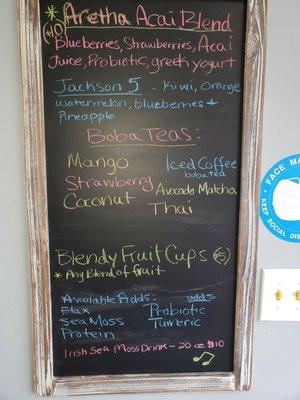 * Aretha Acai Blend
Blueberries, Strawberries, Acai
Juice, Probiotic, greek yogurt
Jackson 5 - Kiwi, orange
watermelon, blueberries +
pineapple
Boba Teas:
Mango
Iced Coffee
boba tea
Strawberry
Avocado Matcha
Coconut
Thai
Blendy Fruit Cups $5
* Any Blend of fruit
Available Adds:
Flax
Probiotic
Sea Moss
Tumeric
Protein
Irish Sea Moss Drink - 20 oz $10
FACE MA
KEEP SOCIAL DIS